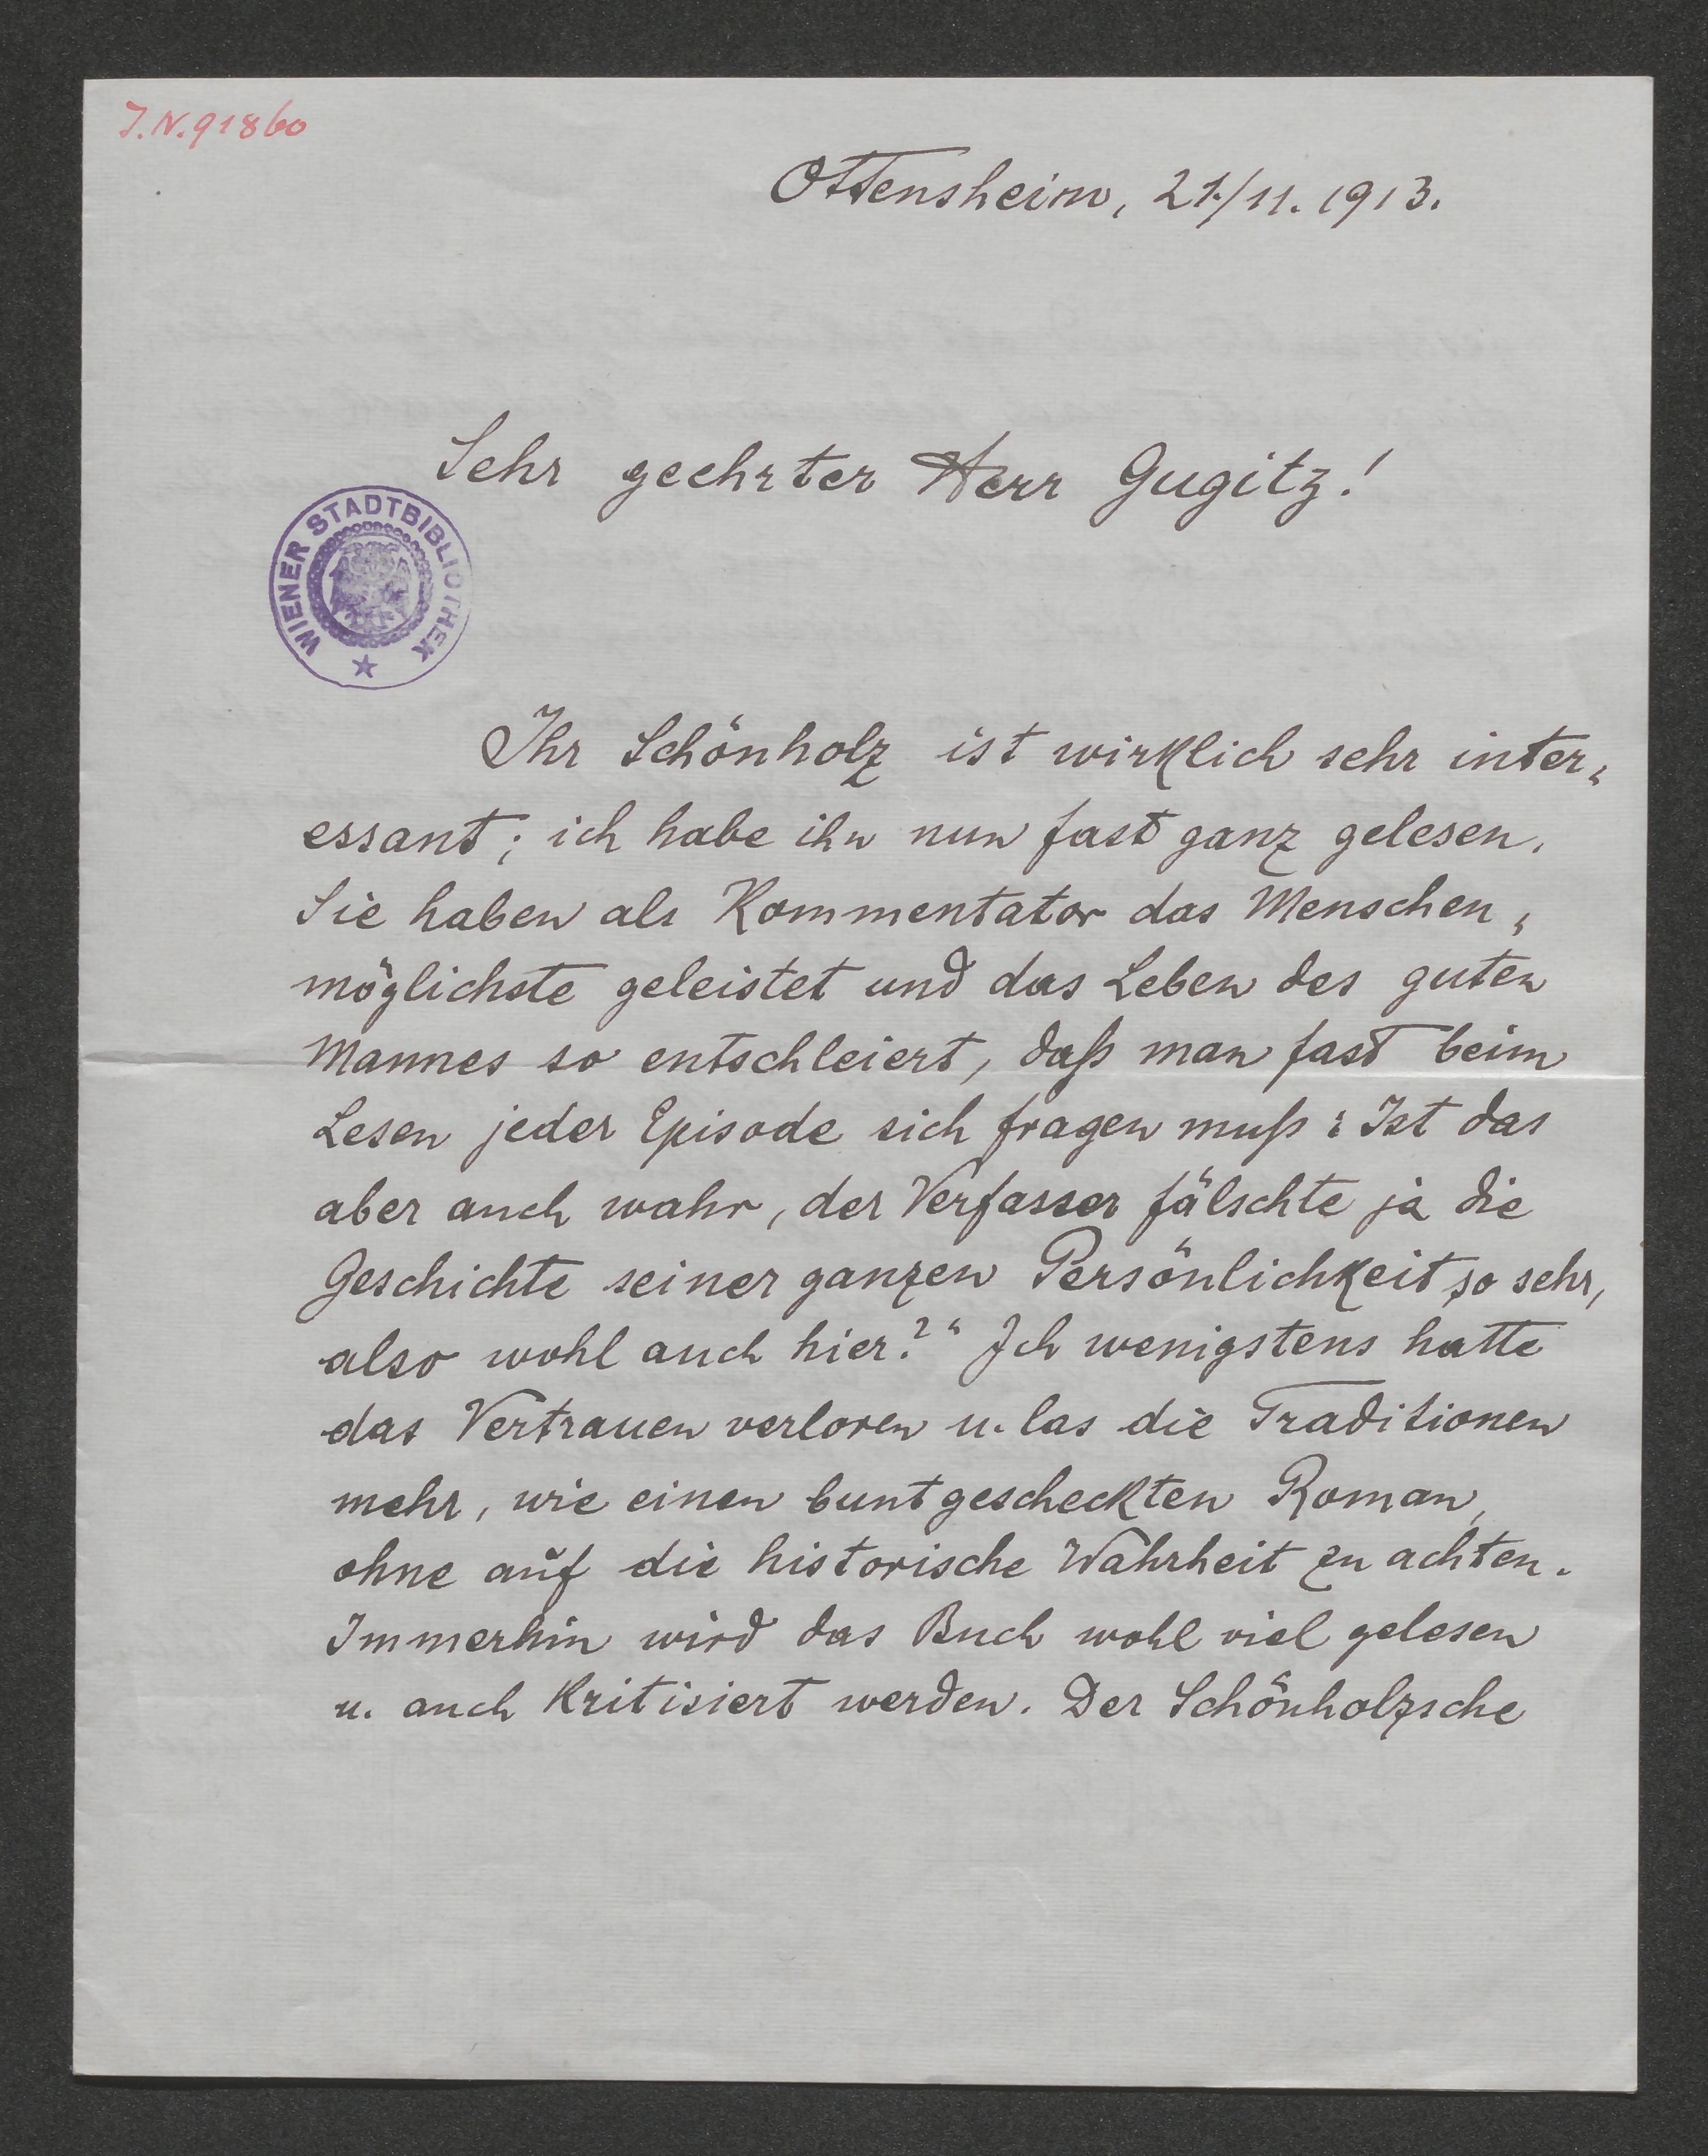 J.N. 91860
Ottensheim, 21./11. 1913.
Sehr geehrter Herr Gugitz!
WIENER STADTBIBLIOTHEK
Ihr Schönholz ist wirklich sehr inter-
essant; ich habe ihn nun fast ganz gelesen.
Sie haben als Kommentator das Menschen-
möglichste geleistet und das Leben des guten
Mannes so entschleiert, daß man fast beim
Lesen jeder Episode sich fragen muß: Ist das
aber auch wahr, der Verfasser fälschte ja die
Geschichte seiner ganzen Persönlichkeit so sehr,
also wohl auch hier?" Ich wenigstens hatte
das Vertrauen verloren u. las die Traditionen
mehr, wie einen buntgescheckten Roman,
ohne auf die historische Wahrheit zu achten.
Immerhin wird das Buch wohl viel gelesen
u. auch kritisiert werden. Der Schönholzsche